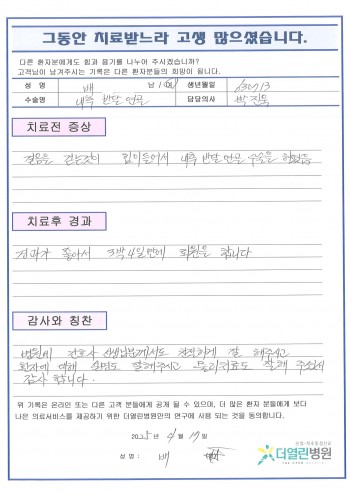 그동안 치료받느라 고생 많으셨습니다.
다른 환자분에게도 힘과 용기를 나누어 주시겠습니까?
고객님이 남겨주시는 기록은 다른 환자분들의 희망이 됩니다.
성 명 배 남 / 여 생년월일 630713
수술명 내측 반달 연골 담당의사 박진욱
치료전 증상
걸음을 걷는것이 힘이들어서 내측 반달 연골 수술을 하였음
치료후 경과
경과가 좋아서 3박4일만에 퇴원을 합니다
감사와 칭찬
병원에 간호사 선생님들께서도 친절하게 잘 해주시고
환자에 대해 설명도 잘해주시고 물리치료도 잘해 주셔서
감사 합니다.
위 기록은 온라인 또는 다른 고객 분들에게 공개 될 수 있으며, 더 많은 환자 분들에게 보다
나은 의료서비스를 제공하기 위한 더열린병원만의 연구에 사용 되는 것을 동의합니다.
2025년 4월 17일
성 명 : 배
더열린병원